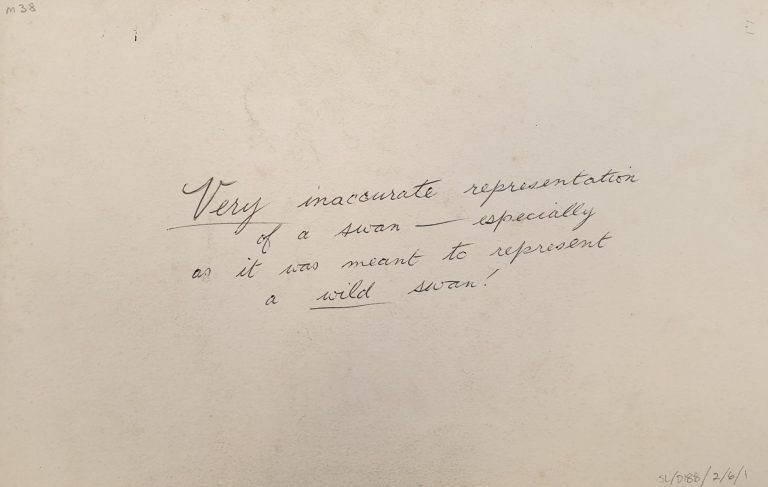 M38
Very inaccurate representation
of a swan — especially
as it was meant to represent
a wild swan!
SL/D188/2/6/1